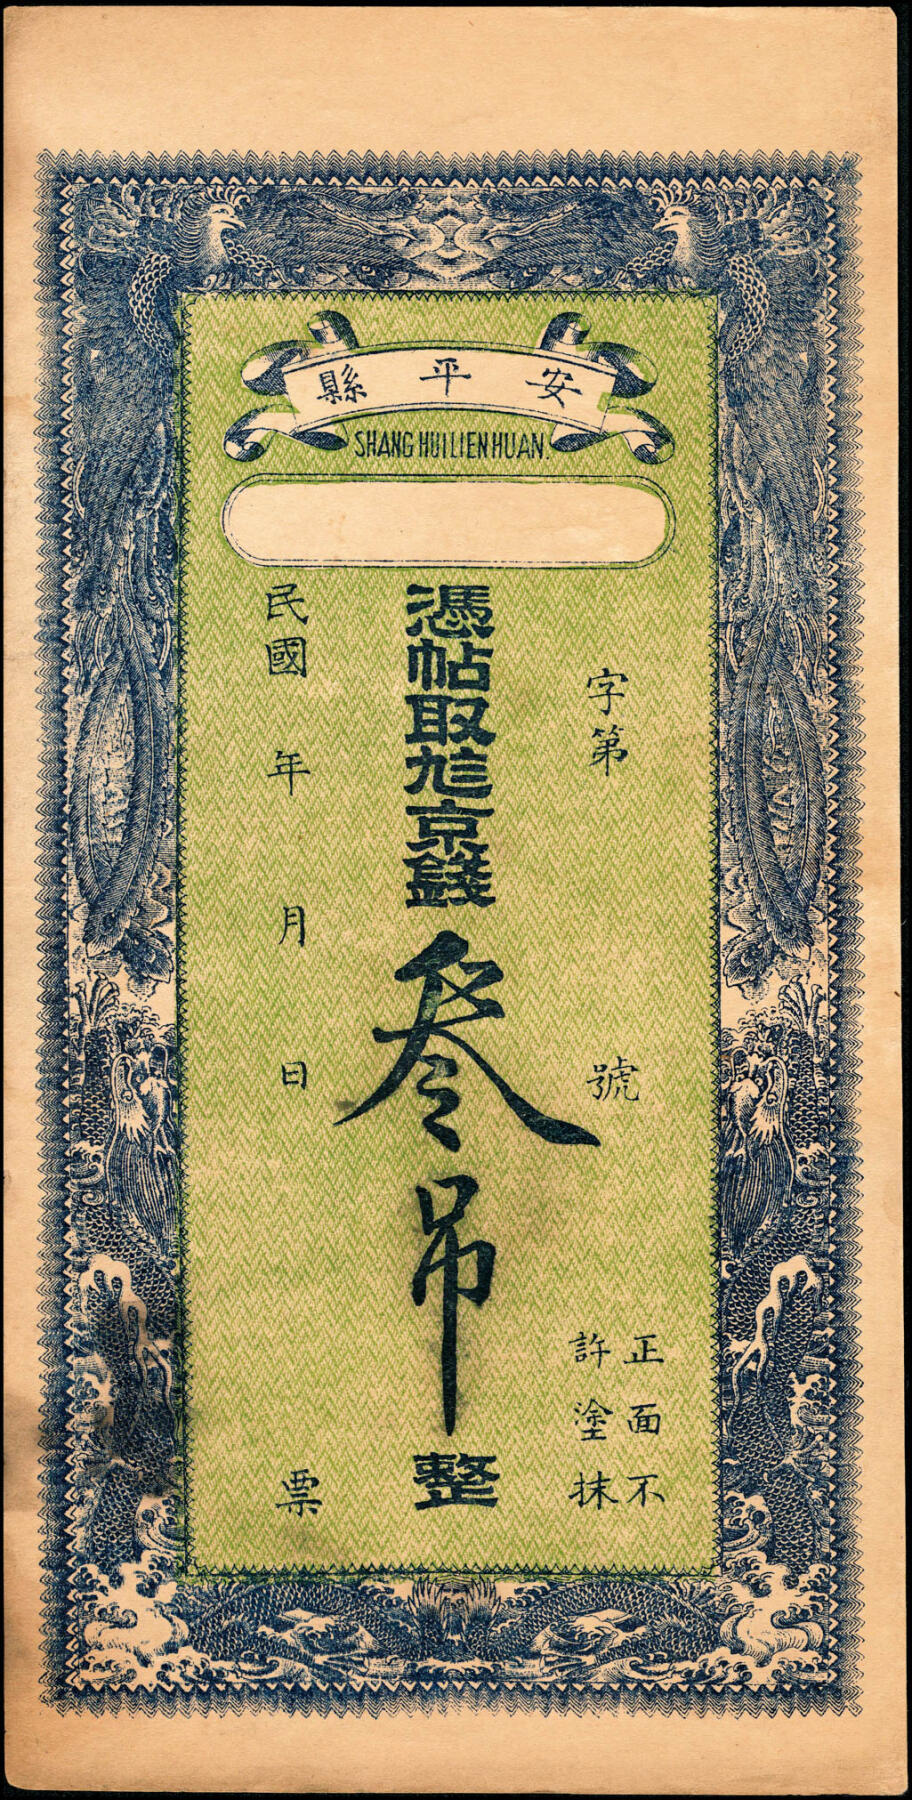 安平縣
SHANG HUI LIEN HUAN.
字第 號
正面不
許塗抹
憑帖取 京錢叁吊整
民國 年 月 日 票